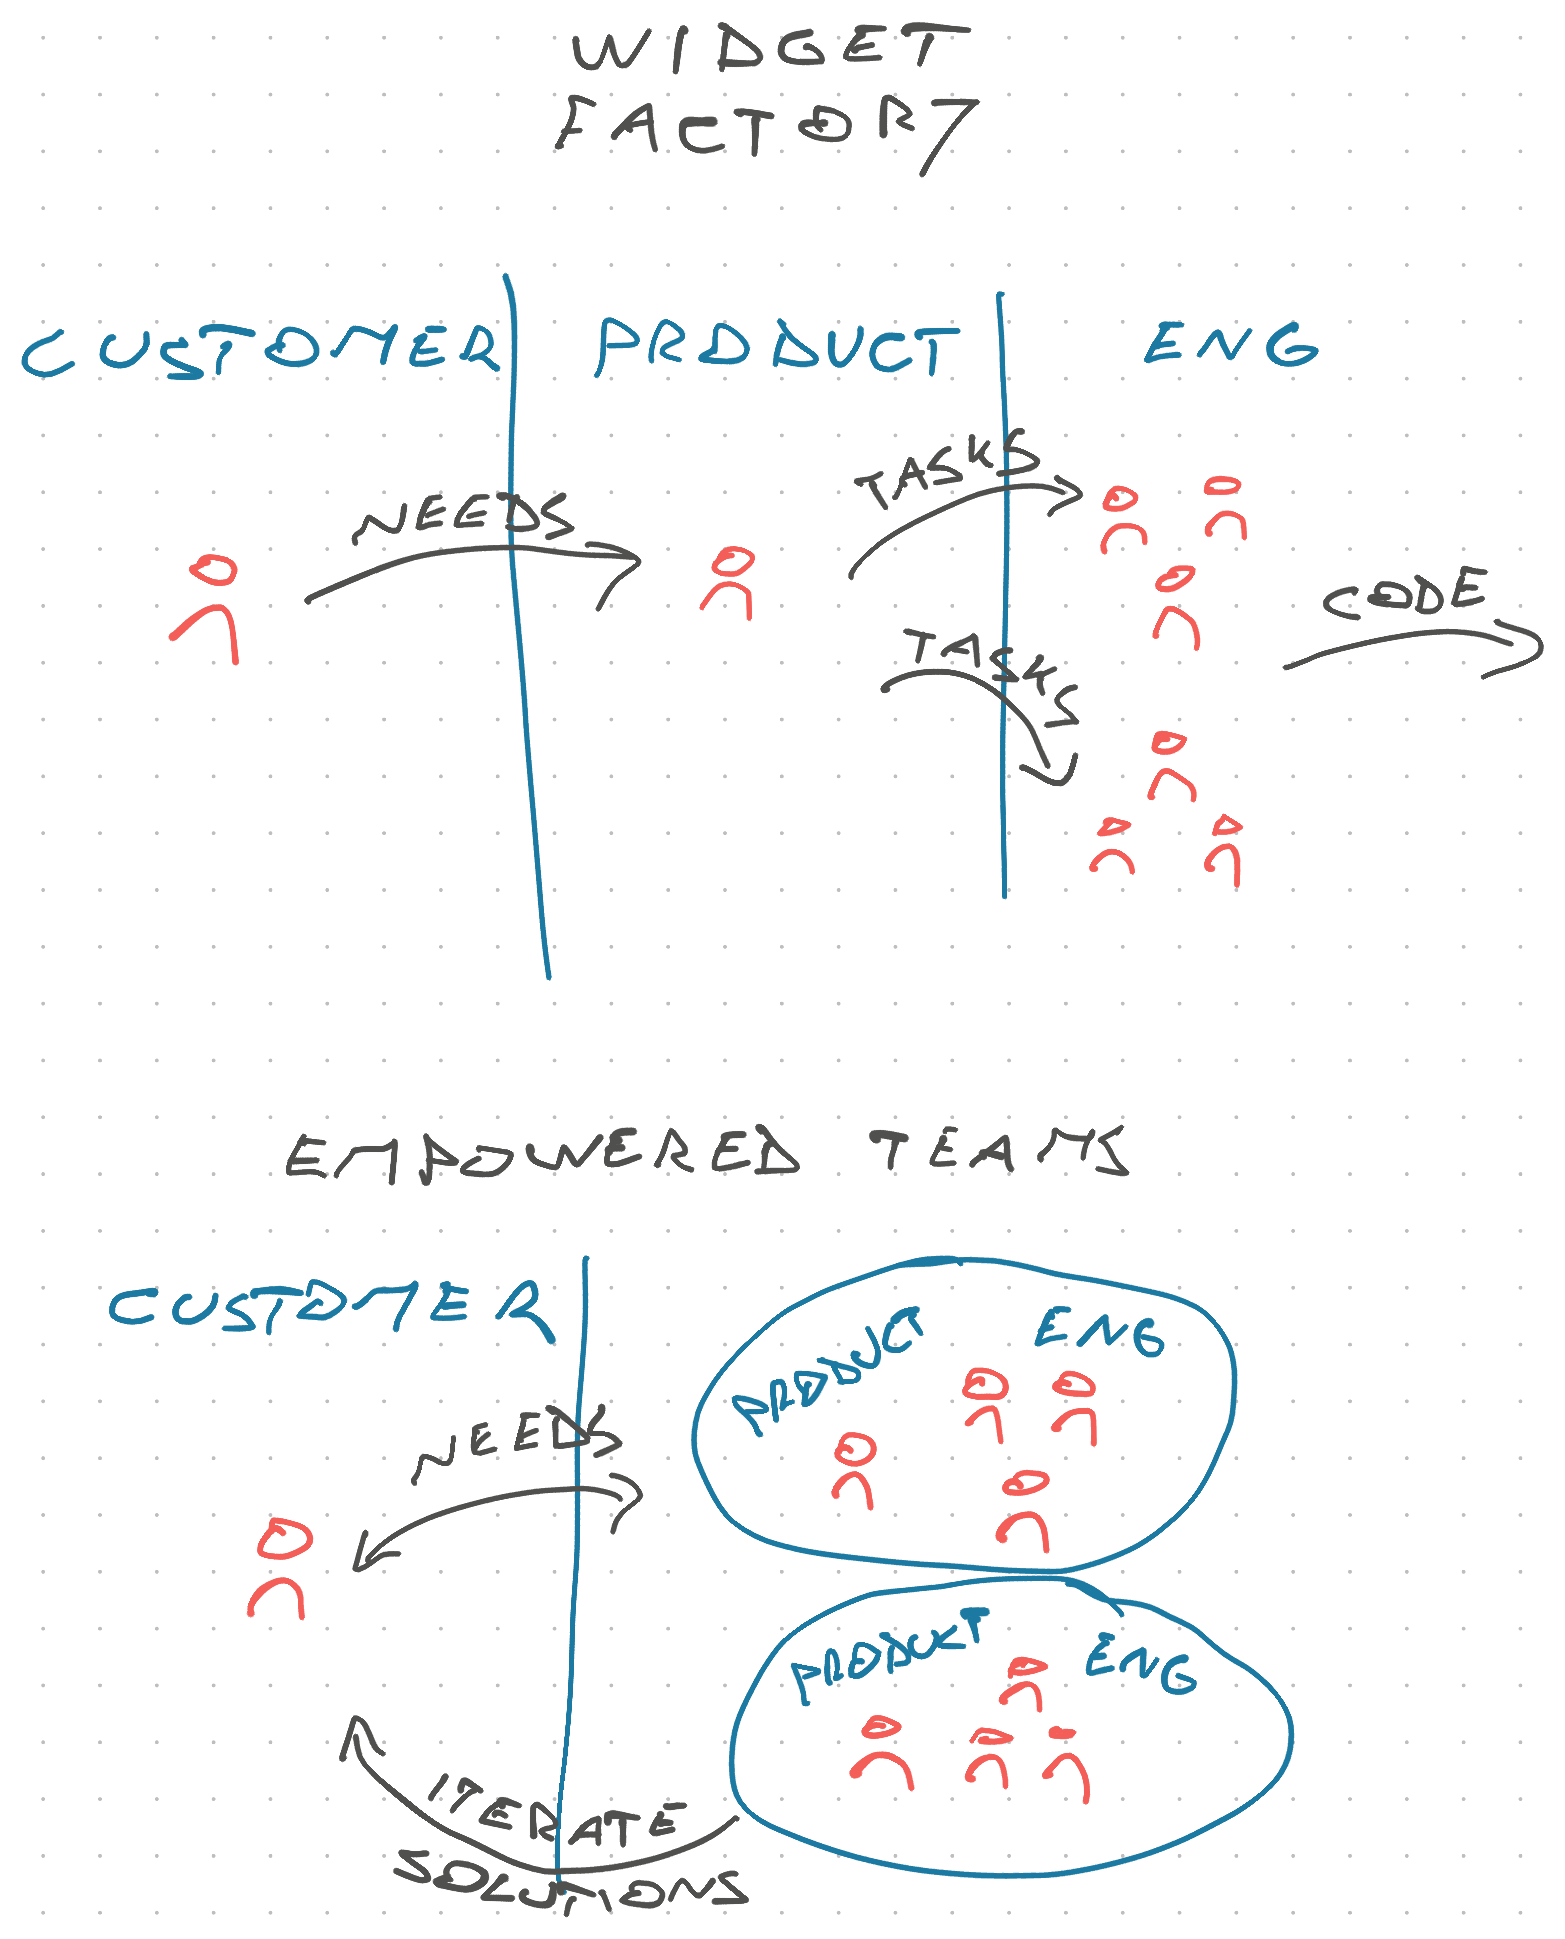 WIDGET
FACTORY
CUSTOMER PRODUCT ENG
NEEDS
TASKS
TASKS
CODE
EMPOWERED TEAMS
CUSTOMER
PRODUCT ENG
NEEDS
PRODUCT ENG
ITERATE
SOLUTIONS